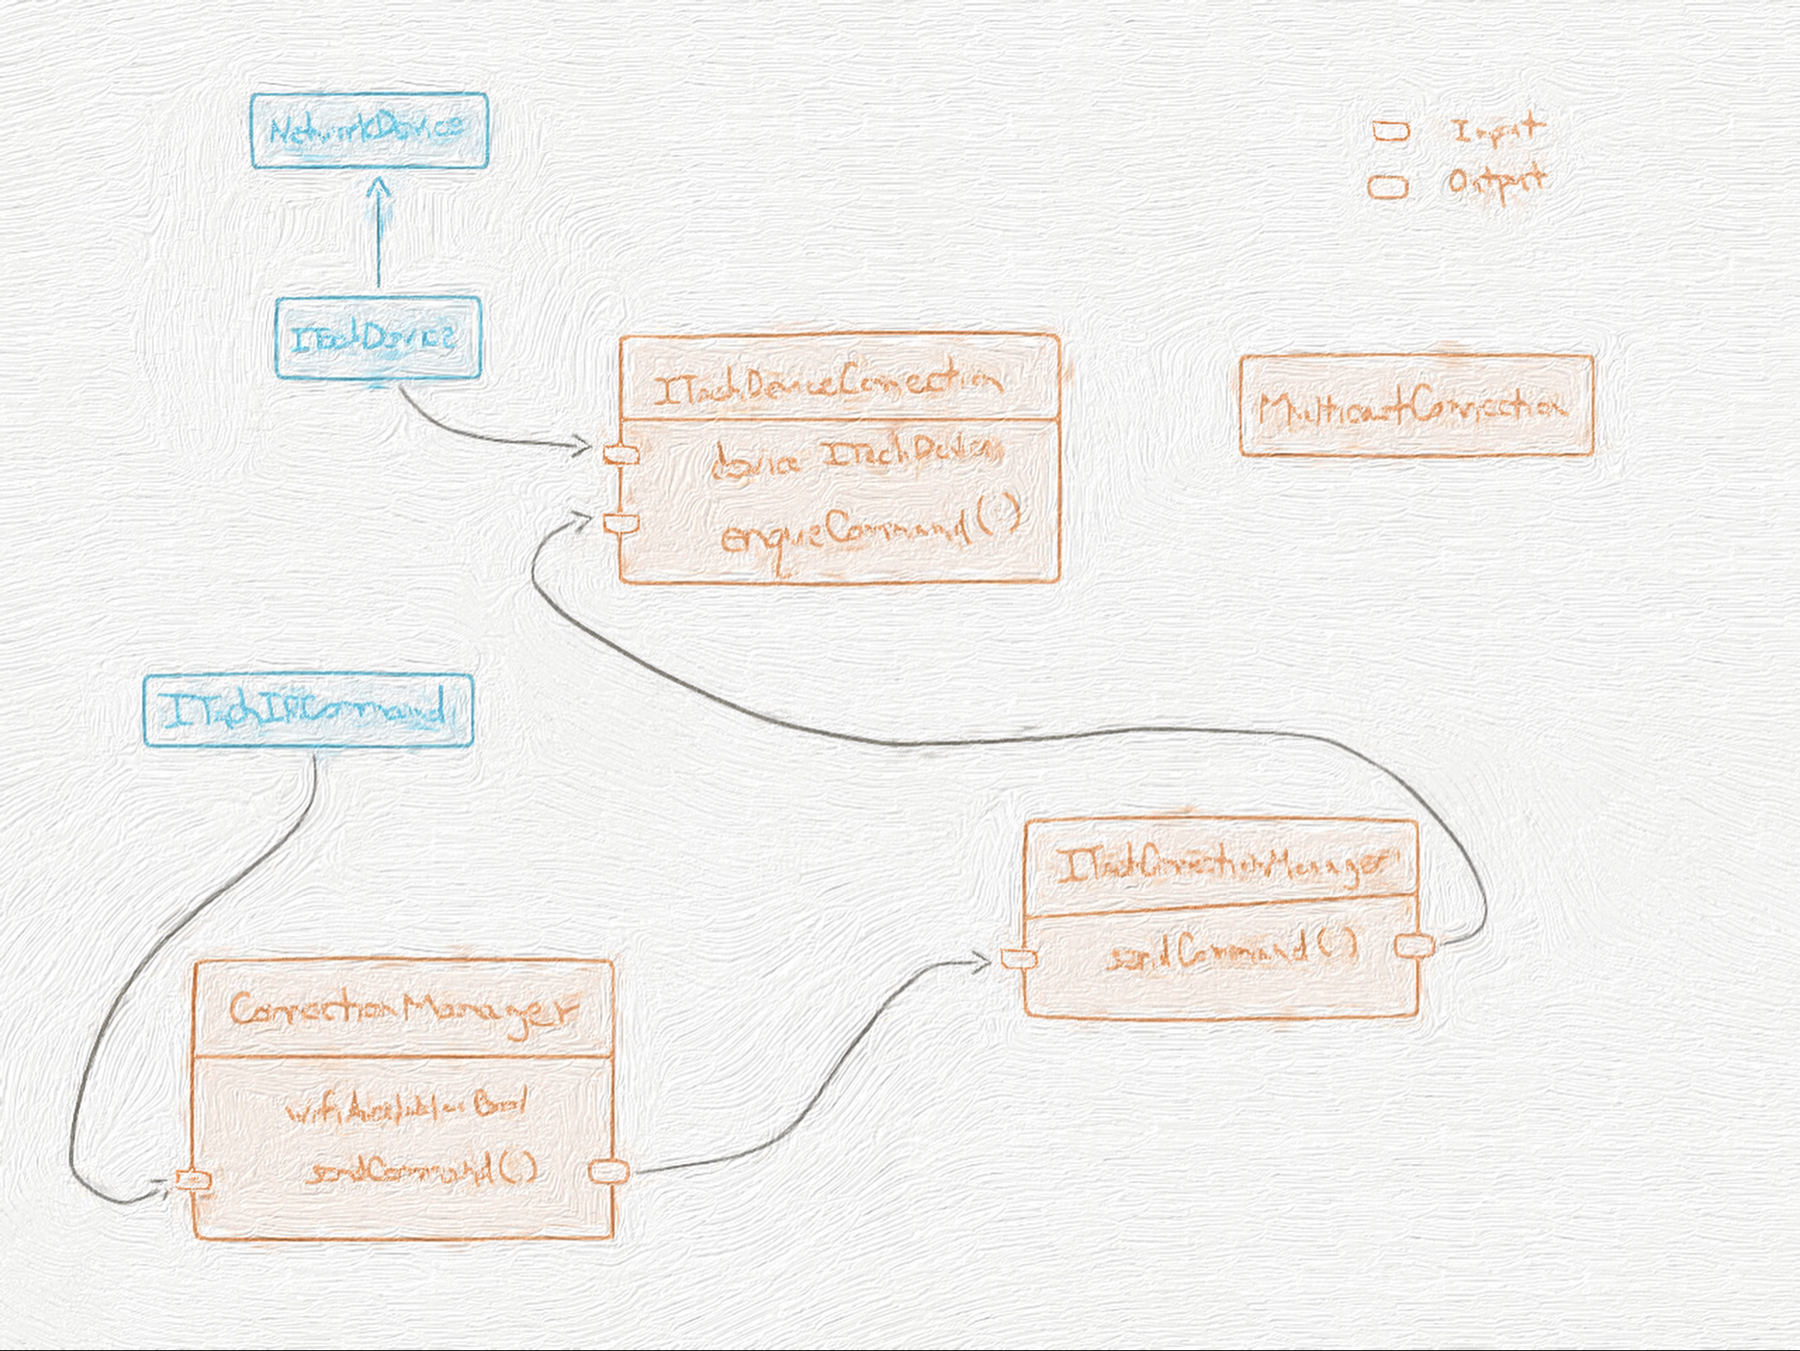 NetworkDevice
Input
Output
ITachDevice
ITachDeviceConnection
device ITachDevice
enqueCommand()
MulticastConnection
ITachIRCommand
ITachConnectionManager
sendCommand()
ConnectionManager
wifiAvailable: Bool
sendCommand()